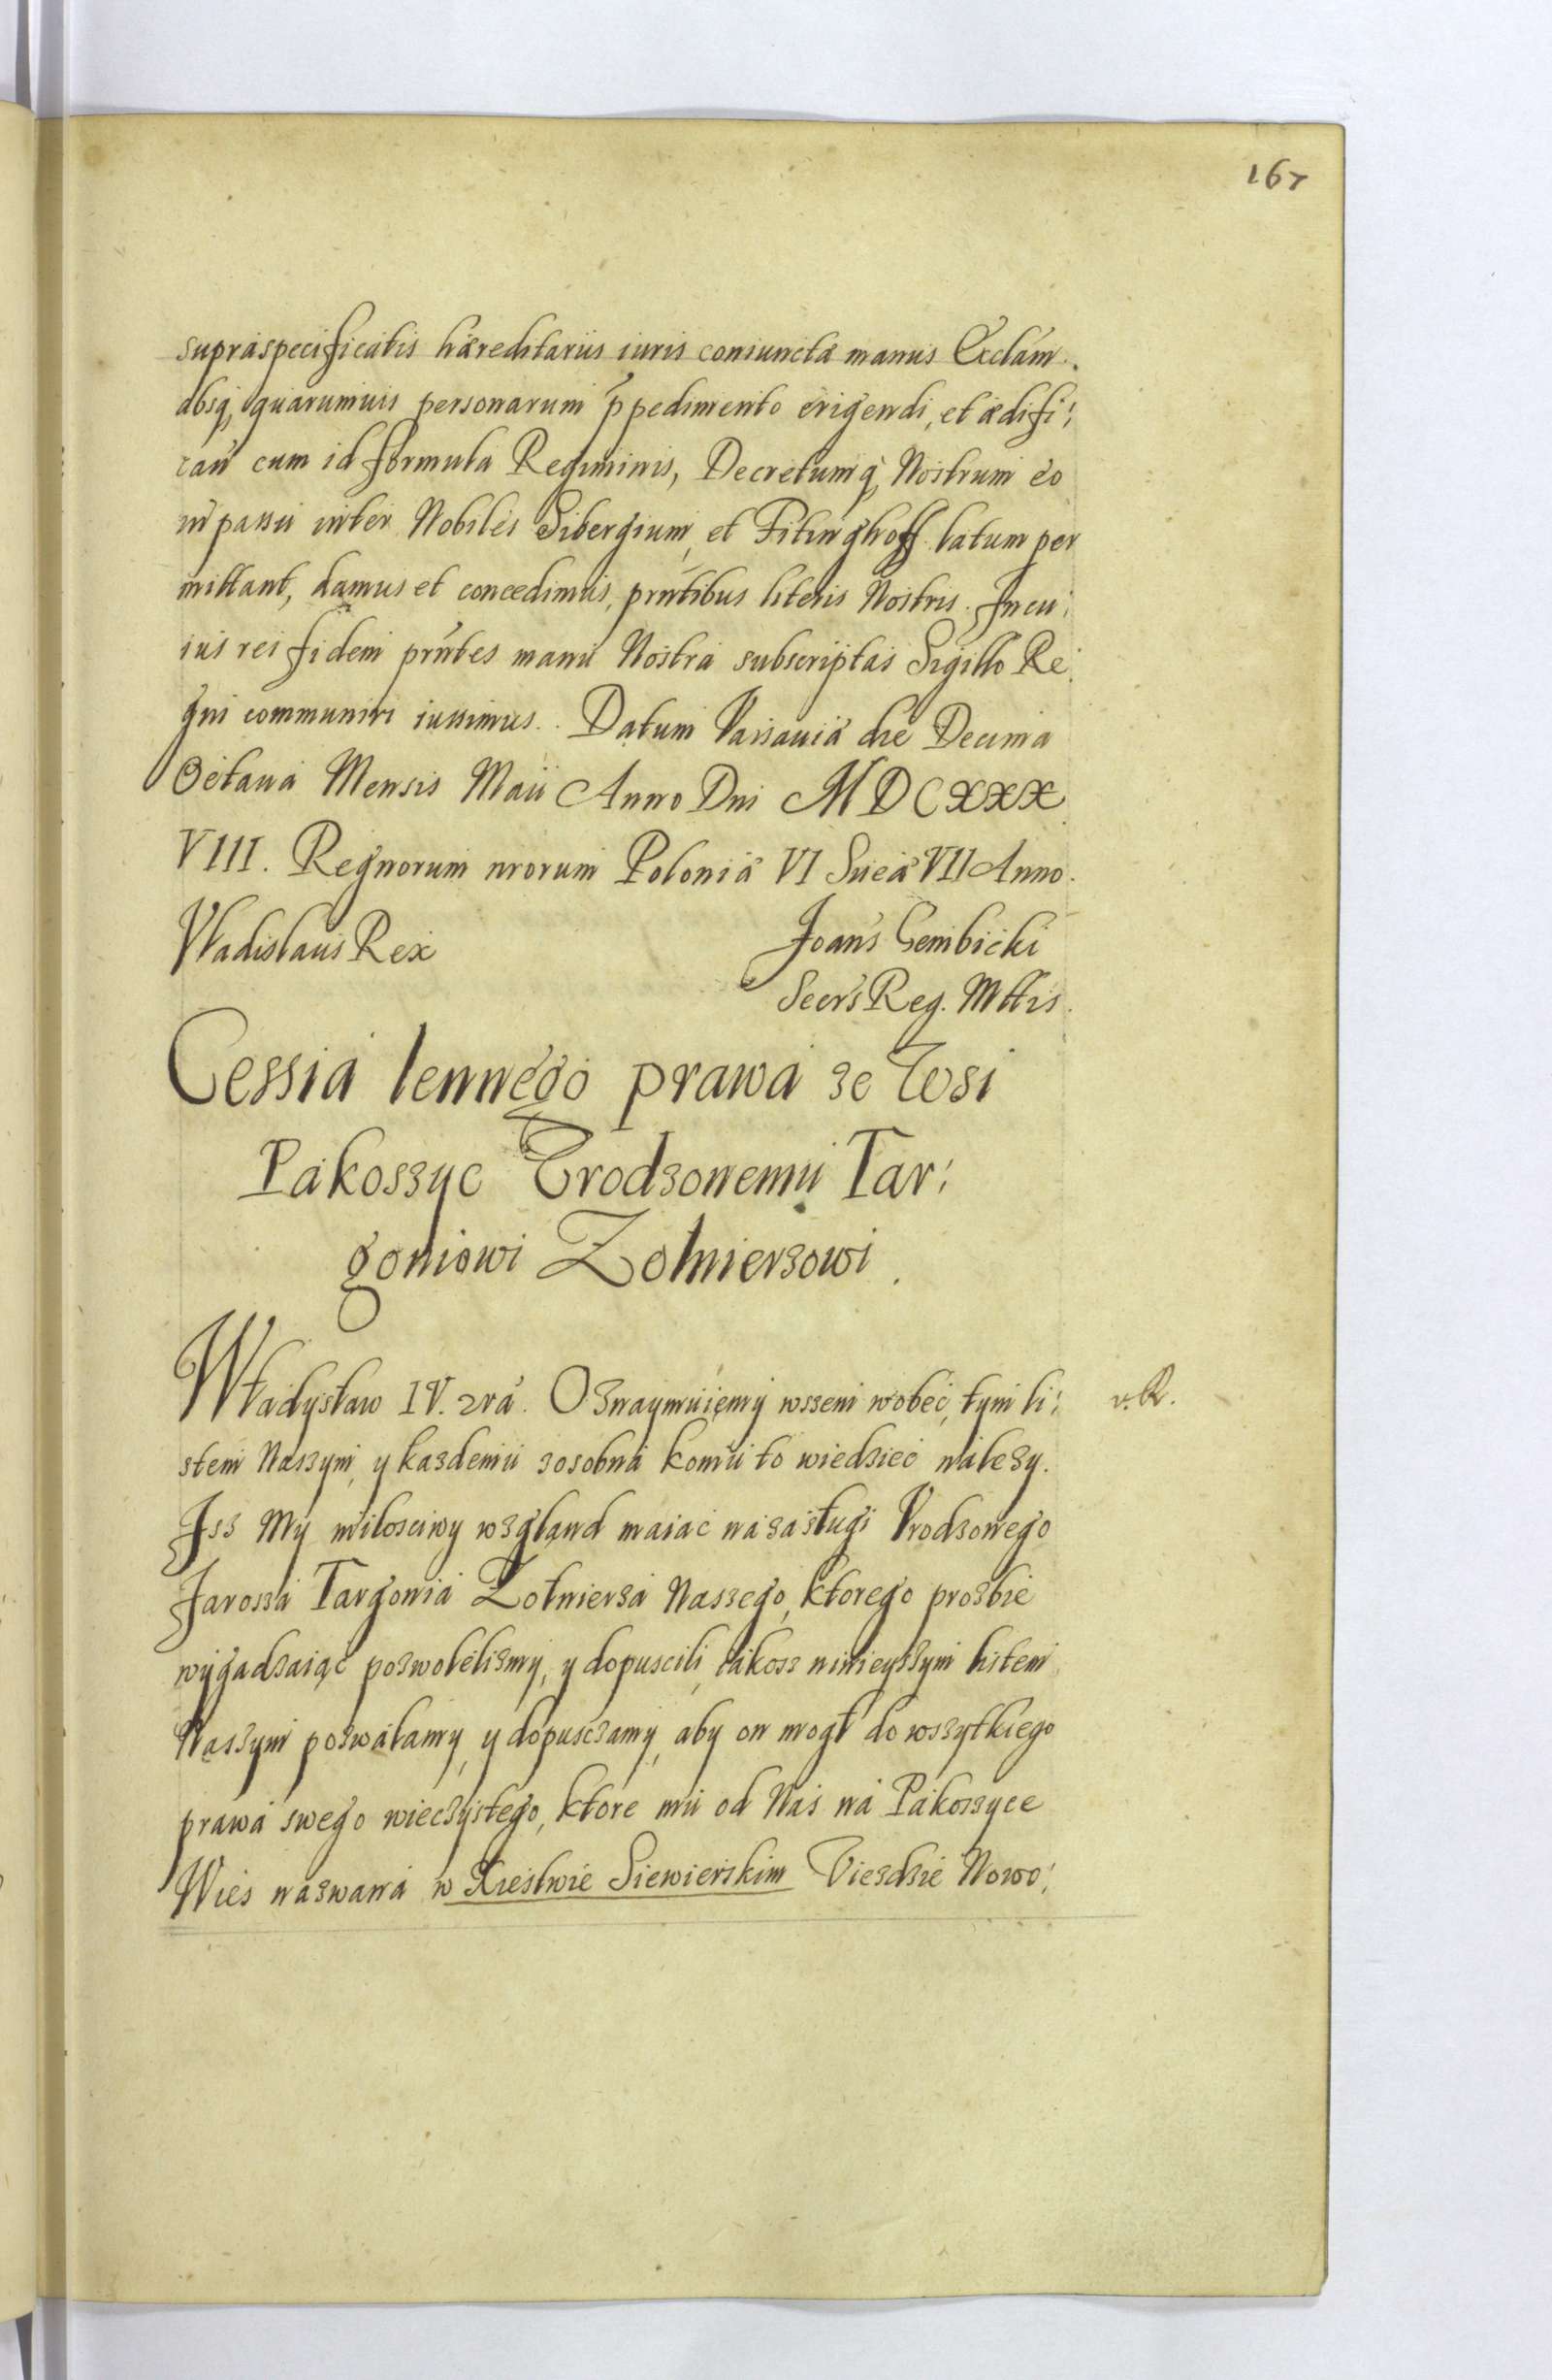 167
supraspecificatis hæreditariis iuris coniunctæ manus Ecclam.
absq, quarumuis personarum p̄pedimento erigendi, et ædifi:
can̄ cum id formula Regiminis, Decretumq, Nostrum eo
in passu inter Nobiles Sibergium, et Fitinghoff latum per
mittant, damus et concedimus, prn̄tibus literis Nostris. In cu:
ius rei fidem prn̄tes manu Nostra subscriptas Sigillo Re:
gni communiri iussimus. Datum Varsauiæ die Decima
Octaua Mensis Maii Anno Dni MDCXXX
VIII. Regnorum nrorum Poloniæ VI Sueciæ VII Anno.
Vladislaus Rex
Joan̄s Gembicki
Secr̄s Reg. Mttis.
Cessia lennego prawa ze Wsi
Pakoszyc Vrodzonemu Tar:
goniowi Zolnierzowi.
Władysław IV. zrá. Oznaymuiemy wssem wobec, tym li:
v. R.
stem Naszym, y kazdemu zosobna komu to wiedziec nalezy.
Isz My milosciwy wzgląnd maiac na zasługi Vrodzonego
Jarosza Targonia Zołnierza Naszego, ktorego prozbie
wygadzaiąc pozwolelismy, y dopuscili, iakosz ninieyszym listem
Naszym pozwalamy, y dopusczamy, aby on mogł do wszytkiego
prawa swego wieczystego, ktore mu od Nas na Pakoszyce
Wies nazwana w Xiestwie Siewierskim Viezdzie Nowo: